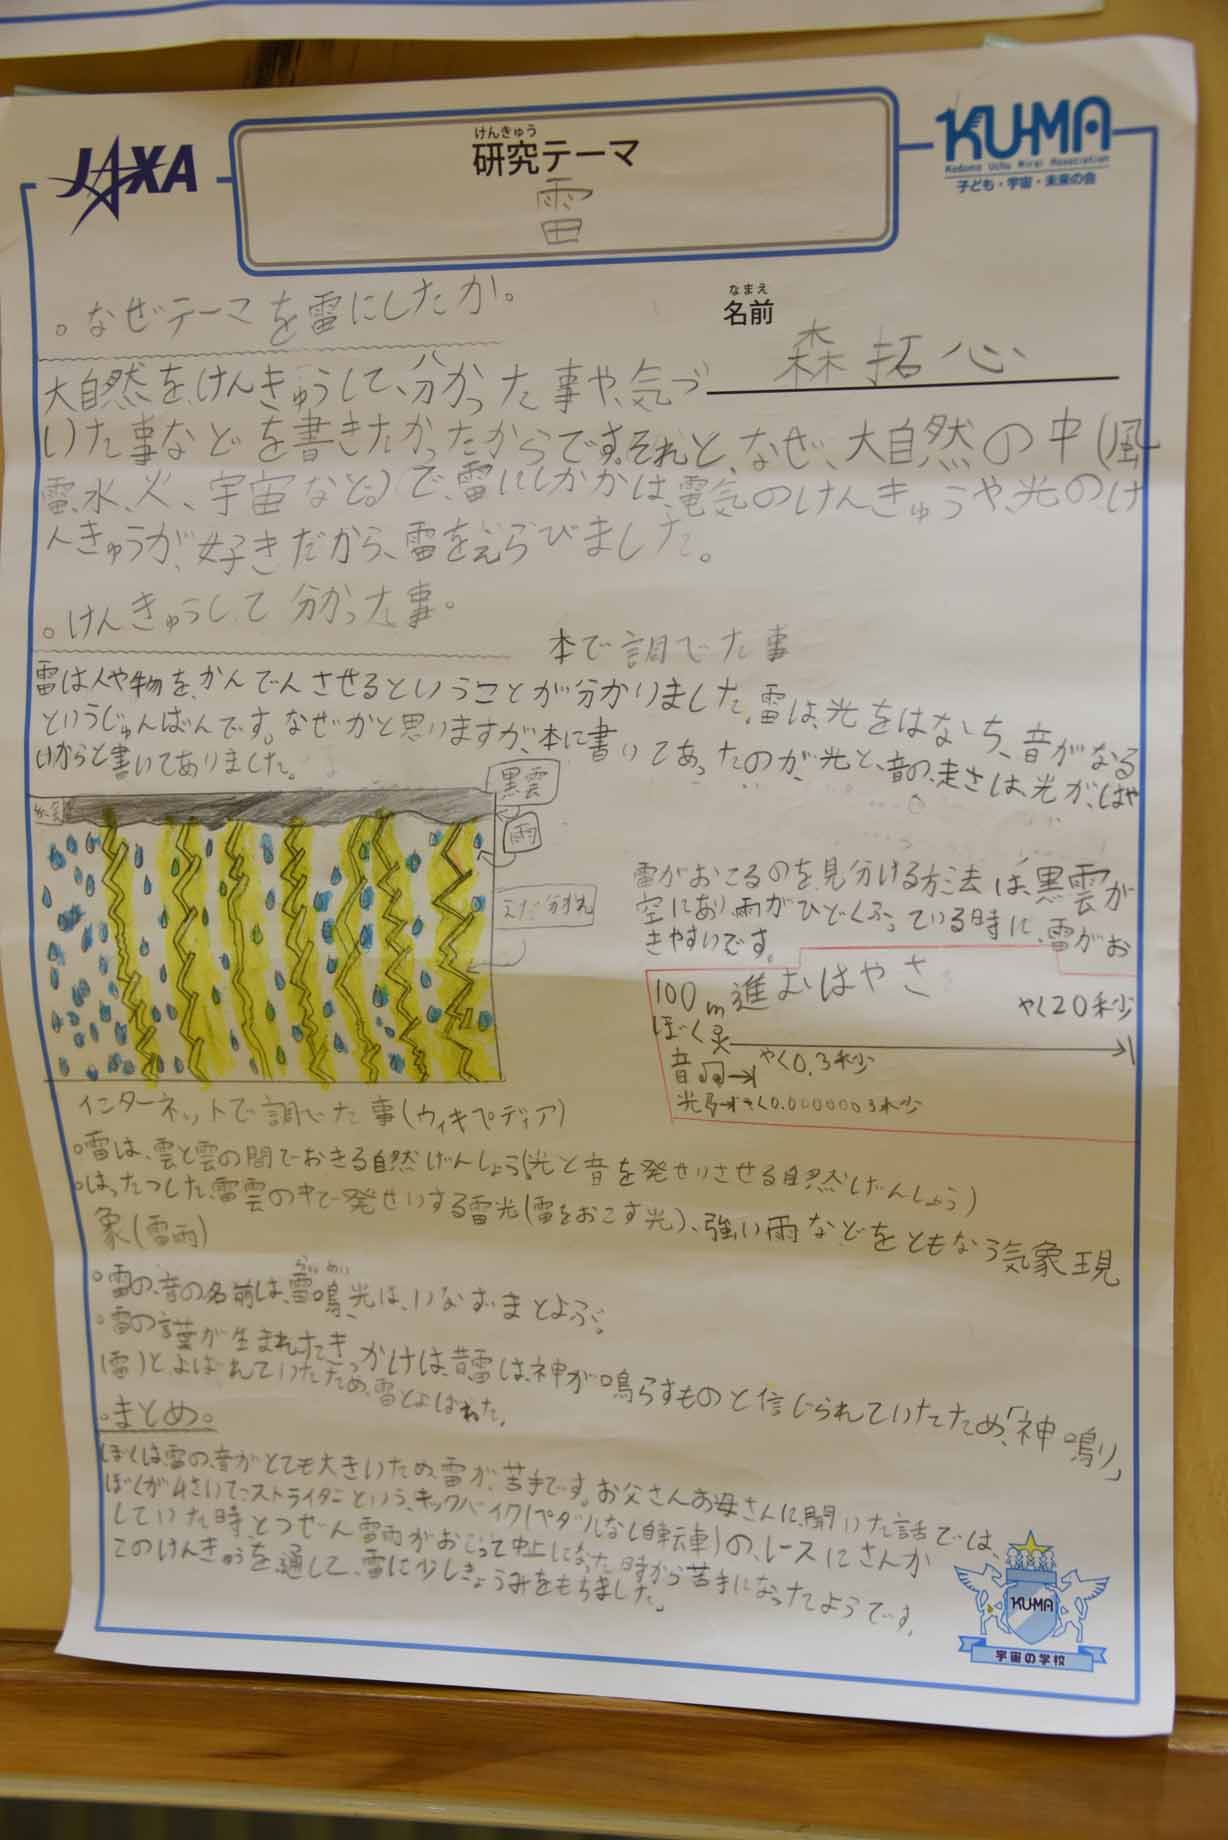 JAXA
けんきゅう
研究テーマ
雷
KU-MA
Kodomo Uchu Mirai Association
子ども・宇宙・未来の会
。なぜテーマを雷にしたか。
なまえ
名前
森拓心
大自然を、けんきゅうして、分かった事や、気づ
いた事などを書きたかったからです。それと、なぜ、大自然の中(風
雷、水、火、宇宙など。)で、雷にしたかは、電気のけんきゅうや、光のけ
んきゅうが、好きだから、雷をえらびました。
。けんきゅうして分かった事。
本で調べた事
雷は人や物を、かんでんさせるということが分かりました。雷は、光をはなち、音がなる
というじゅんばんです。なぜかと思いますが、本に書いてあったのが、光と、音の、速さは、光が、はや
いからと書いてありました。
黒雲
雨
えだ分かれ
雷がおこるのを、見分ける方法は、黒雲が
空にあり、雨がひどくふっている時に、雷がお
きやすいです。
100m進むはやさ
ぼく やく20秒
音 やく0.3秒
光 やく0.0000003秒
インターネットで調べた事(ウィキペディア)
。雷は、雲と雲の間でおきる自然げんしょう(光と音を発せいさせる自然げんしょう)
。はったつした、雷雲の中で発せいする雷光(雷をおこす光)、強い雨などをともなう気象現
象(雷雨)
らいめい
。雷の、音の名前は、雷鳴、光は、いなずまとよぶ。
。雷の言葉が生まれたきっかけは、昔雷は、神が鳴らすものと信じられていたため、「神鳴り」
(雷)とよばれていたため、雷とよばれた。
。まとめ。
ぼくは雷の、音がとても大きいため、雷が、苦手です。お父さんお母さんに、聞いた話では、
ぼくが4さいでストライダーという、キックバイク(ペダルなし自転車)の、レースにさんか
していた時、とつぜん雷雨がおこって中止になった時から苦手になったようです。
このけんきゅうを通して、雷に少しきょうみをもちました。
KU-MA
宇宙の学校